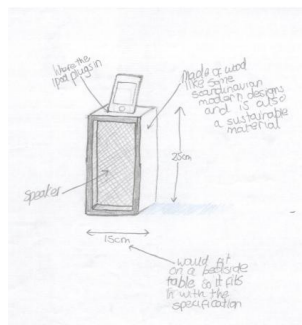 Where the
ipod plugs in
Made of wood
like some
scandinavian
modern designs
and is also
a sustainable
material
25cm
Speaker
15cm
would fit
on a bedside
table so it fits
in with the
specification